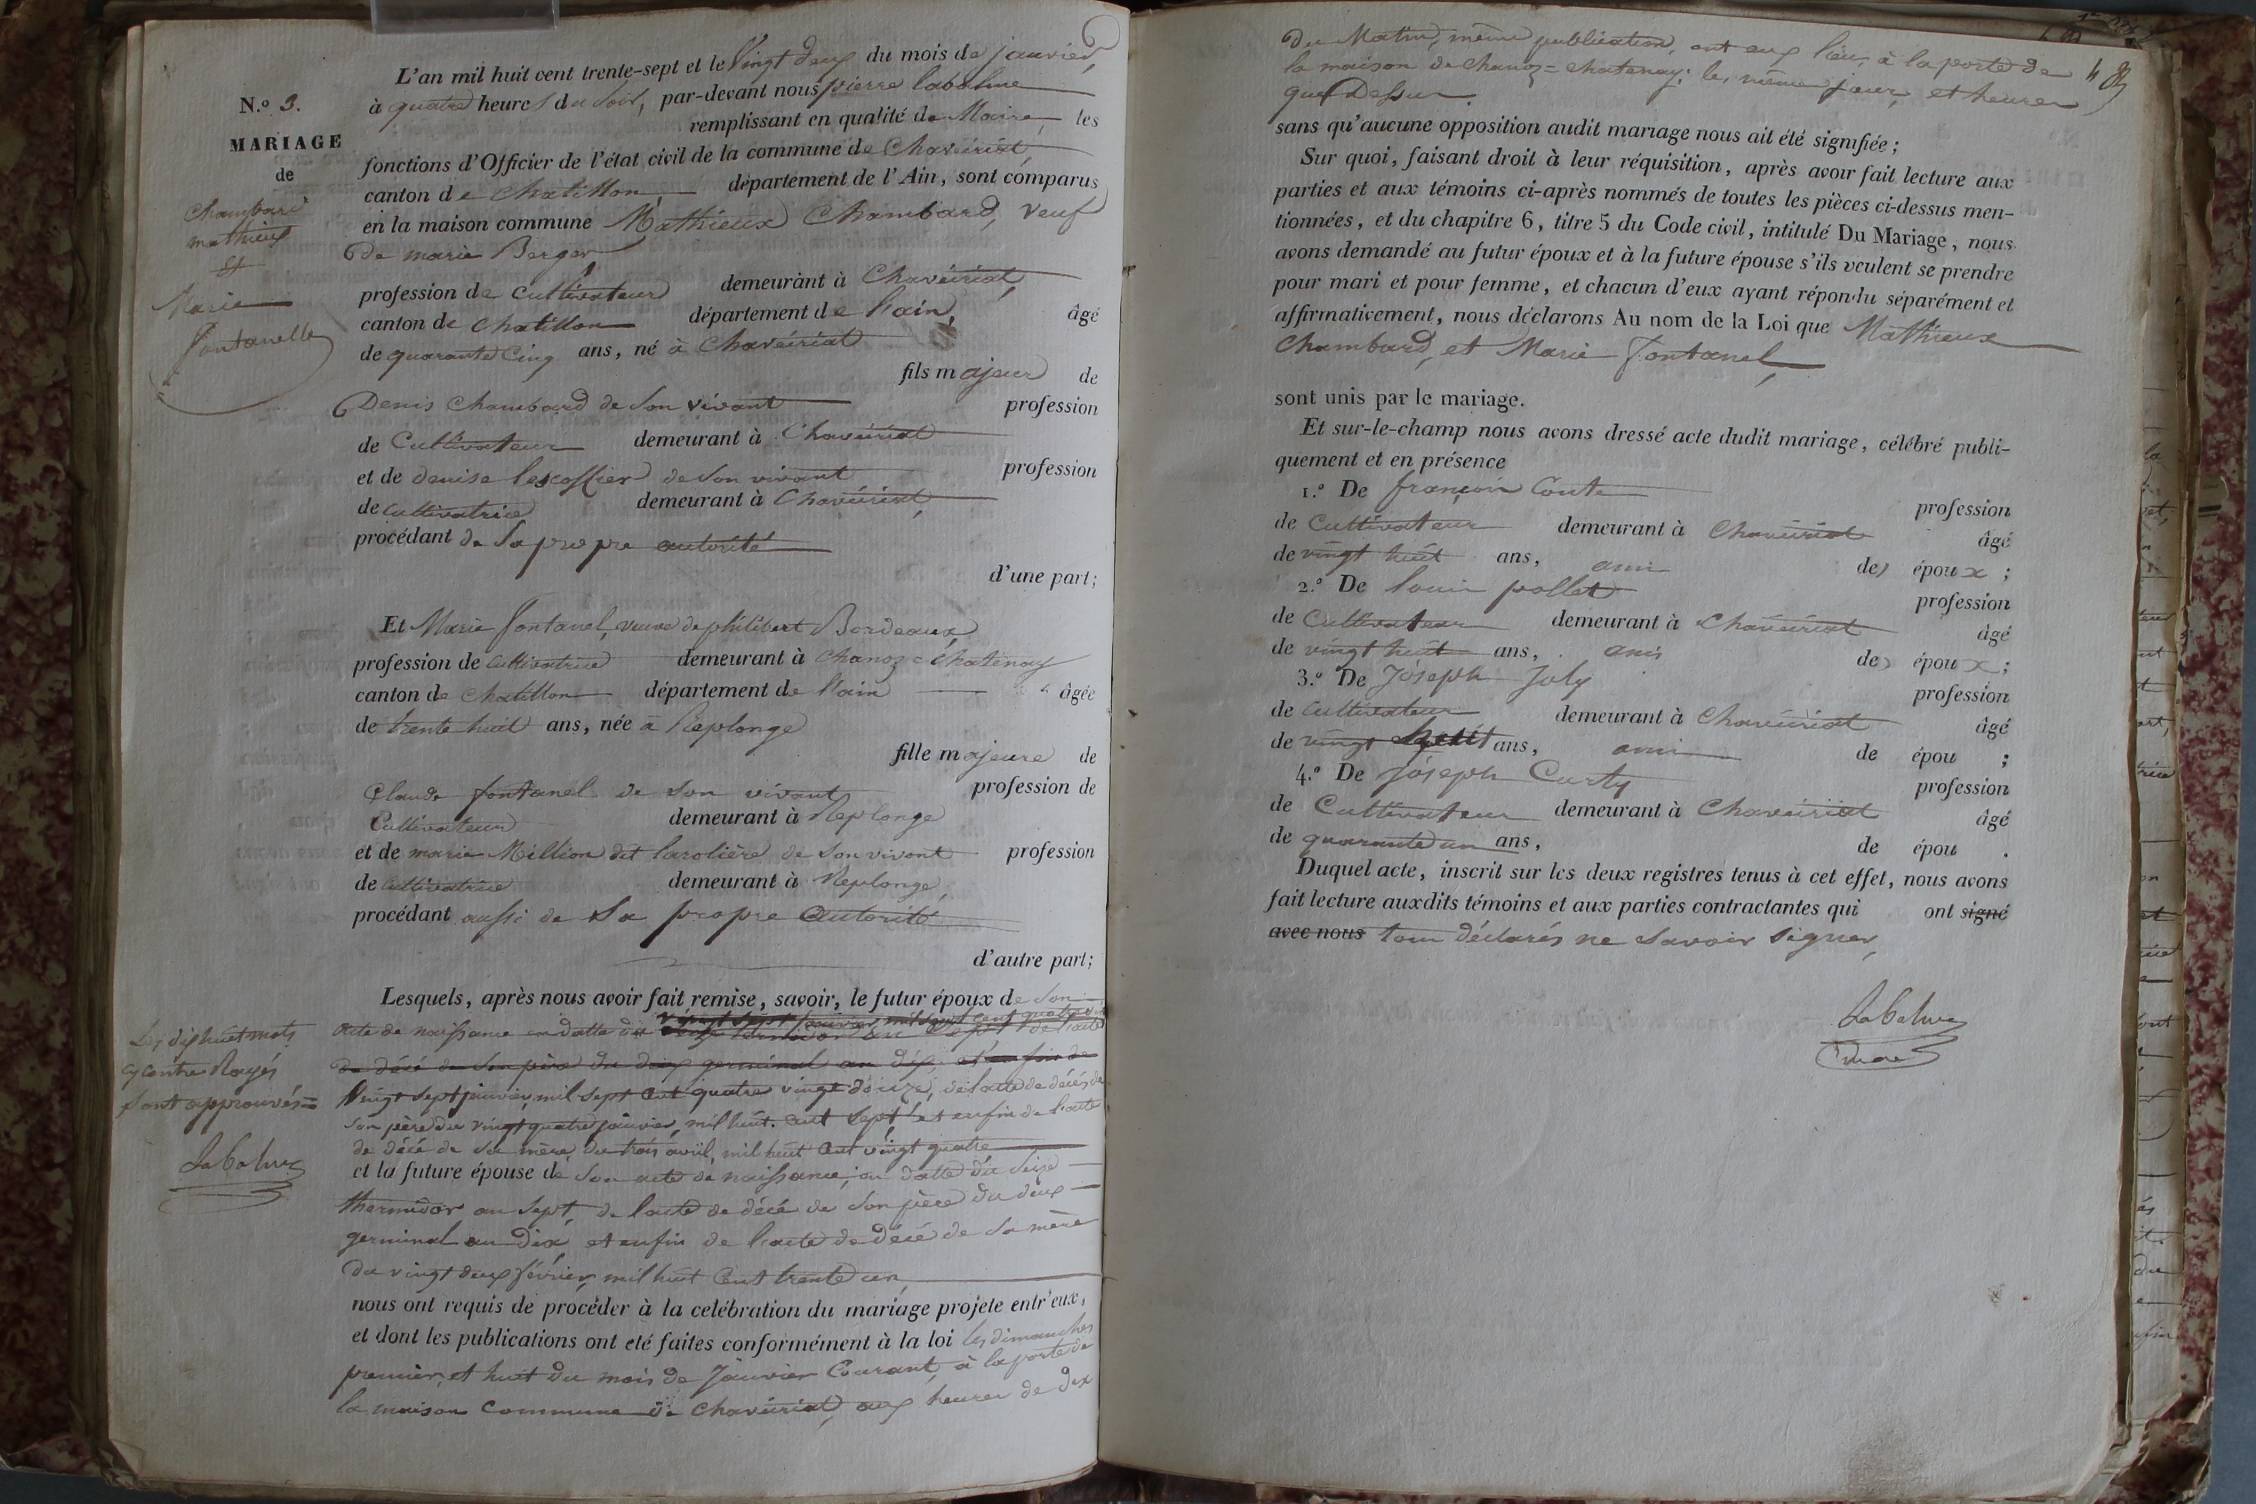 N.º 3.
MARIAGE
de
Chambard
mathieux
Et
Marie
Fontanelle
L'an mil huit cent trente-sept et le vingt deux du mois de janvier,
à quatre heures du soir, par-devant nous pierre labalme
remplissant en qualité de Maire, les
fonctions d'Officier de l'état civil de la commune de Chavéiriat,
canton de Chatillon, département de l'Ain, sont comparus
en la maison commune Mathieux Chambard, veuf
De marie Berger
profession de cultivateur demeurant à Chavéiriat,
canton de chatillon département de l'ain, âgé
de quarante cinq ans, né à Chavéiriat
fils majeur de
Denis Chambard de son vivant profession
de Cultivateur demeurant à Chavéiriat
et de denise lescoffier de son vivant profession
de cultivatrice demeurant à Chavéiriat,
procédant de sa propre autorité
d'une part;
Et Marie fontanel, veuve de philibert Bordeaux,
profession de cultivatrice demeurant à Chanoz=Chatenay
canton de chatillon département de l'ain âgée
de trente huit ans, née à Replonge
fille majeure de
Claude fontanel de son vivant profession de
Cultivateur demeurant à Replonge
et de marie Million dit larolière de son vivant profession
de cultivatrice demeurant à Replonge,
procédant aussi de sa propre autorité
d'autre part;
Lesquels, après nous avoir fait remise, savoir, le futur époux de son
acte de naissance en datte du vingt sept janvier mil sept cent quatre
seize thermidor an sept de l'acte
de décé de son père du dix germinal an dix, et enfin de
Vingt sept janvier, mil sept cent quatre vingt douze, de l'acte de décés de
son père du vingt quatre janvier, mil huit cent sept, et enfin de l'acte
de décé de sa mère du trois avril, mil huit cent vingt quatre
et la future épouse de son acte de naissance, en datte du seize
thermidor an sept, de l'acte de décé de son père du deux
germinal an Dix, et enfin de l'acte de décé de sa mère
du vingt deux février, mil huit cent trente un,
nous ont requis de procéder à la celébration du mariage projete entr'eux,
et dont les publications ont eté faites conformément à la loi les dimanches
premier, et huit du mois de Janvier Courant, à la porte de
la maison commune de chavéiriat, aux heures de dix
Les dix huit mots
cy contre Rayés
sont approuvés=
Labalme
du Matin, même publication, ont eux lieu, à la porte de
la maison de chanoz=chatenay; les même jour, et heures
que Dessus.
sans qu'aucune opposition audit mariage nous ait été signifiée;
Sur quoi, faisant droit à leur réquisition, après avoir fait lecture aux
parties et aux témoins ci-après nommés de toutes les pièces ci-dessus men-
tionnées, et du chapitre 6, titre 5 du Code civil, intitulé Du Mariage, nous
avons demandé au futur époux et à la future épouse s'ils veulent se prendre
pour mari et pour femme, et chacun d'eux ayant répondu séparément et
affirmativement, nous déclarons Au nom de la Loi que Mathieux
Chambard, et Marie Fontanel,
sont unis par le mariage.
Et sur-le-champ nous avons dressé acte dudit mariage, célébré publi-
quement et en présence
1.º De françois Conte profession
de Cultivateur demeurant à Chavéiriat âgé
de vingt huit ans, ami des époux;
2.º De louis pollet profession
de Cultivateur demeurant à Chavéiriat âgé
de vingt huit ans, amis des époux;
3.º De Joseph Joly profession
de cultivateur demeurant à Chavéiriat âgé
de vingt huit ans, ami de épou ;
4.º De Joseph Curty profession
de Cultivateur demeurant à Chavéiriat âgé
de quarante un ans, de épou .
Duquel acte, inscrit sur les deux registres tenus à cet effet, nous avons
fait lecture auxdits témoins et aux parties contractantes qui ont signé
avec nous tous déclarés ne savoir signer,
Labalme
maire